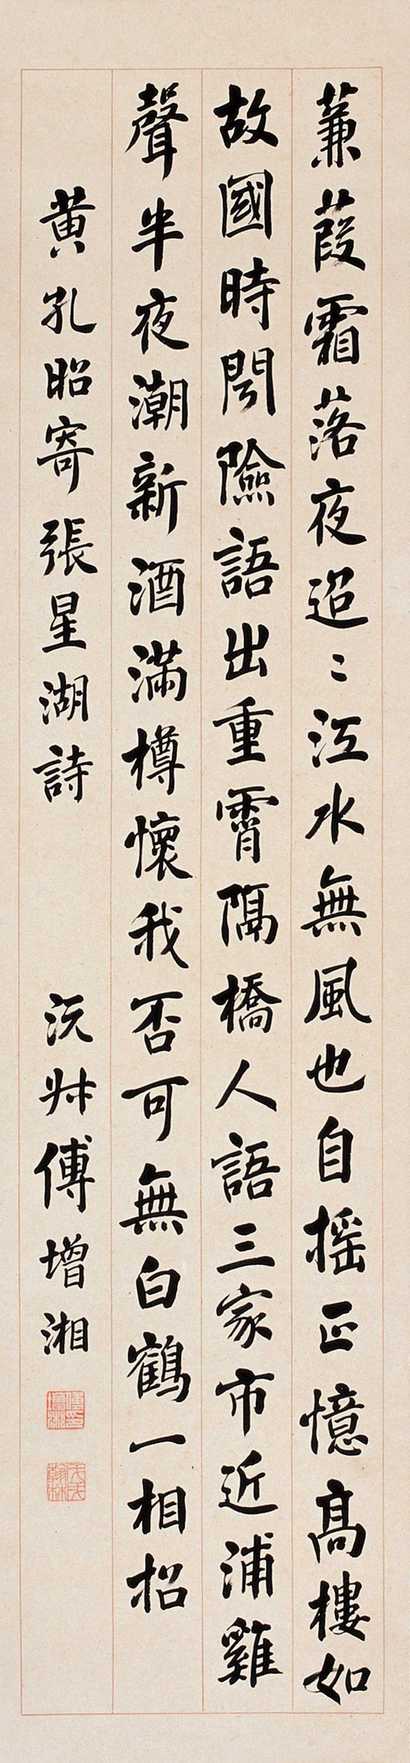 蒹葭霜落夜迢〻江水無風也自摇正憶高樓如
故國時聞險語出重霄隔橋人語三家市近浦雞
聲半夜潮新酒滿樽懷我否可無白鶴一相招
黄孔昭寄張星湖詩 沅叔傅增湘